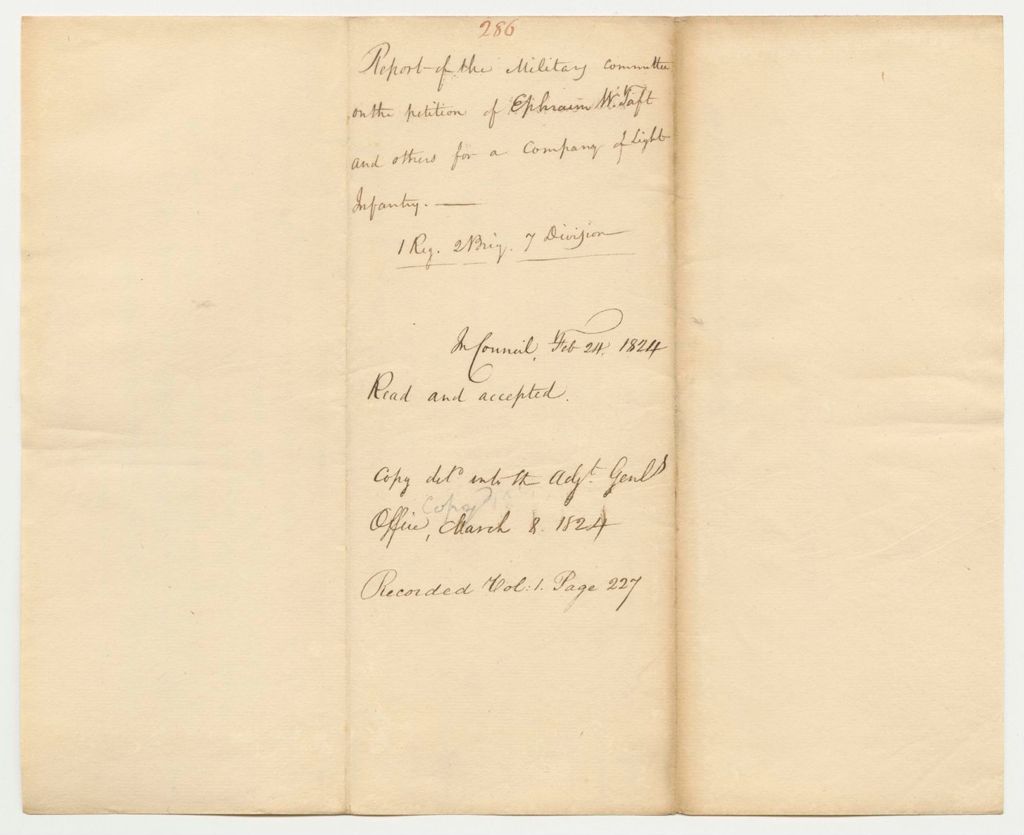 286
Report of the Military committee
on the petition of Ephraim W. Taft
and others for a Company of Light
Infantry. —
1 Reg. 2 Brig. 7 Division
In Council, Feb 24. 1824
Read and accepted.
Copy deld into the Adjt. Genls
Copy
Office, March 8. 1824
Recorded Vol: 1. Page 227